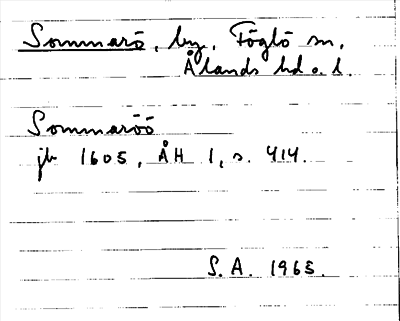 Sommarö, by, Föglö sn,
Ålands hd o. l.
Sommaröö
jb 1605, ÅH 1, s. 414.
S. A. 1963.